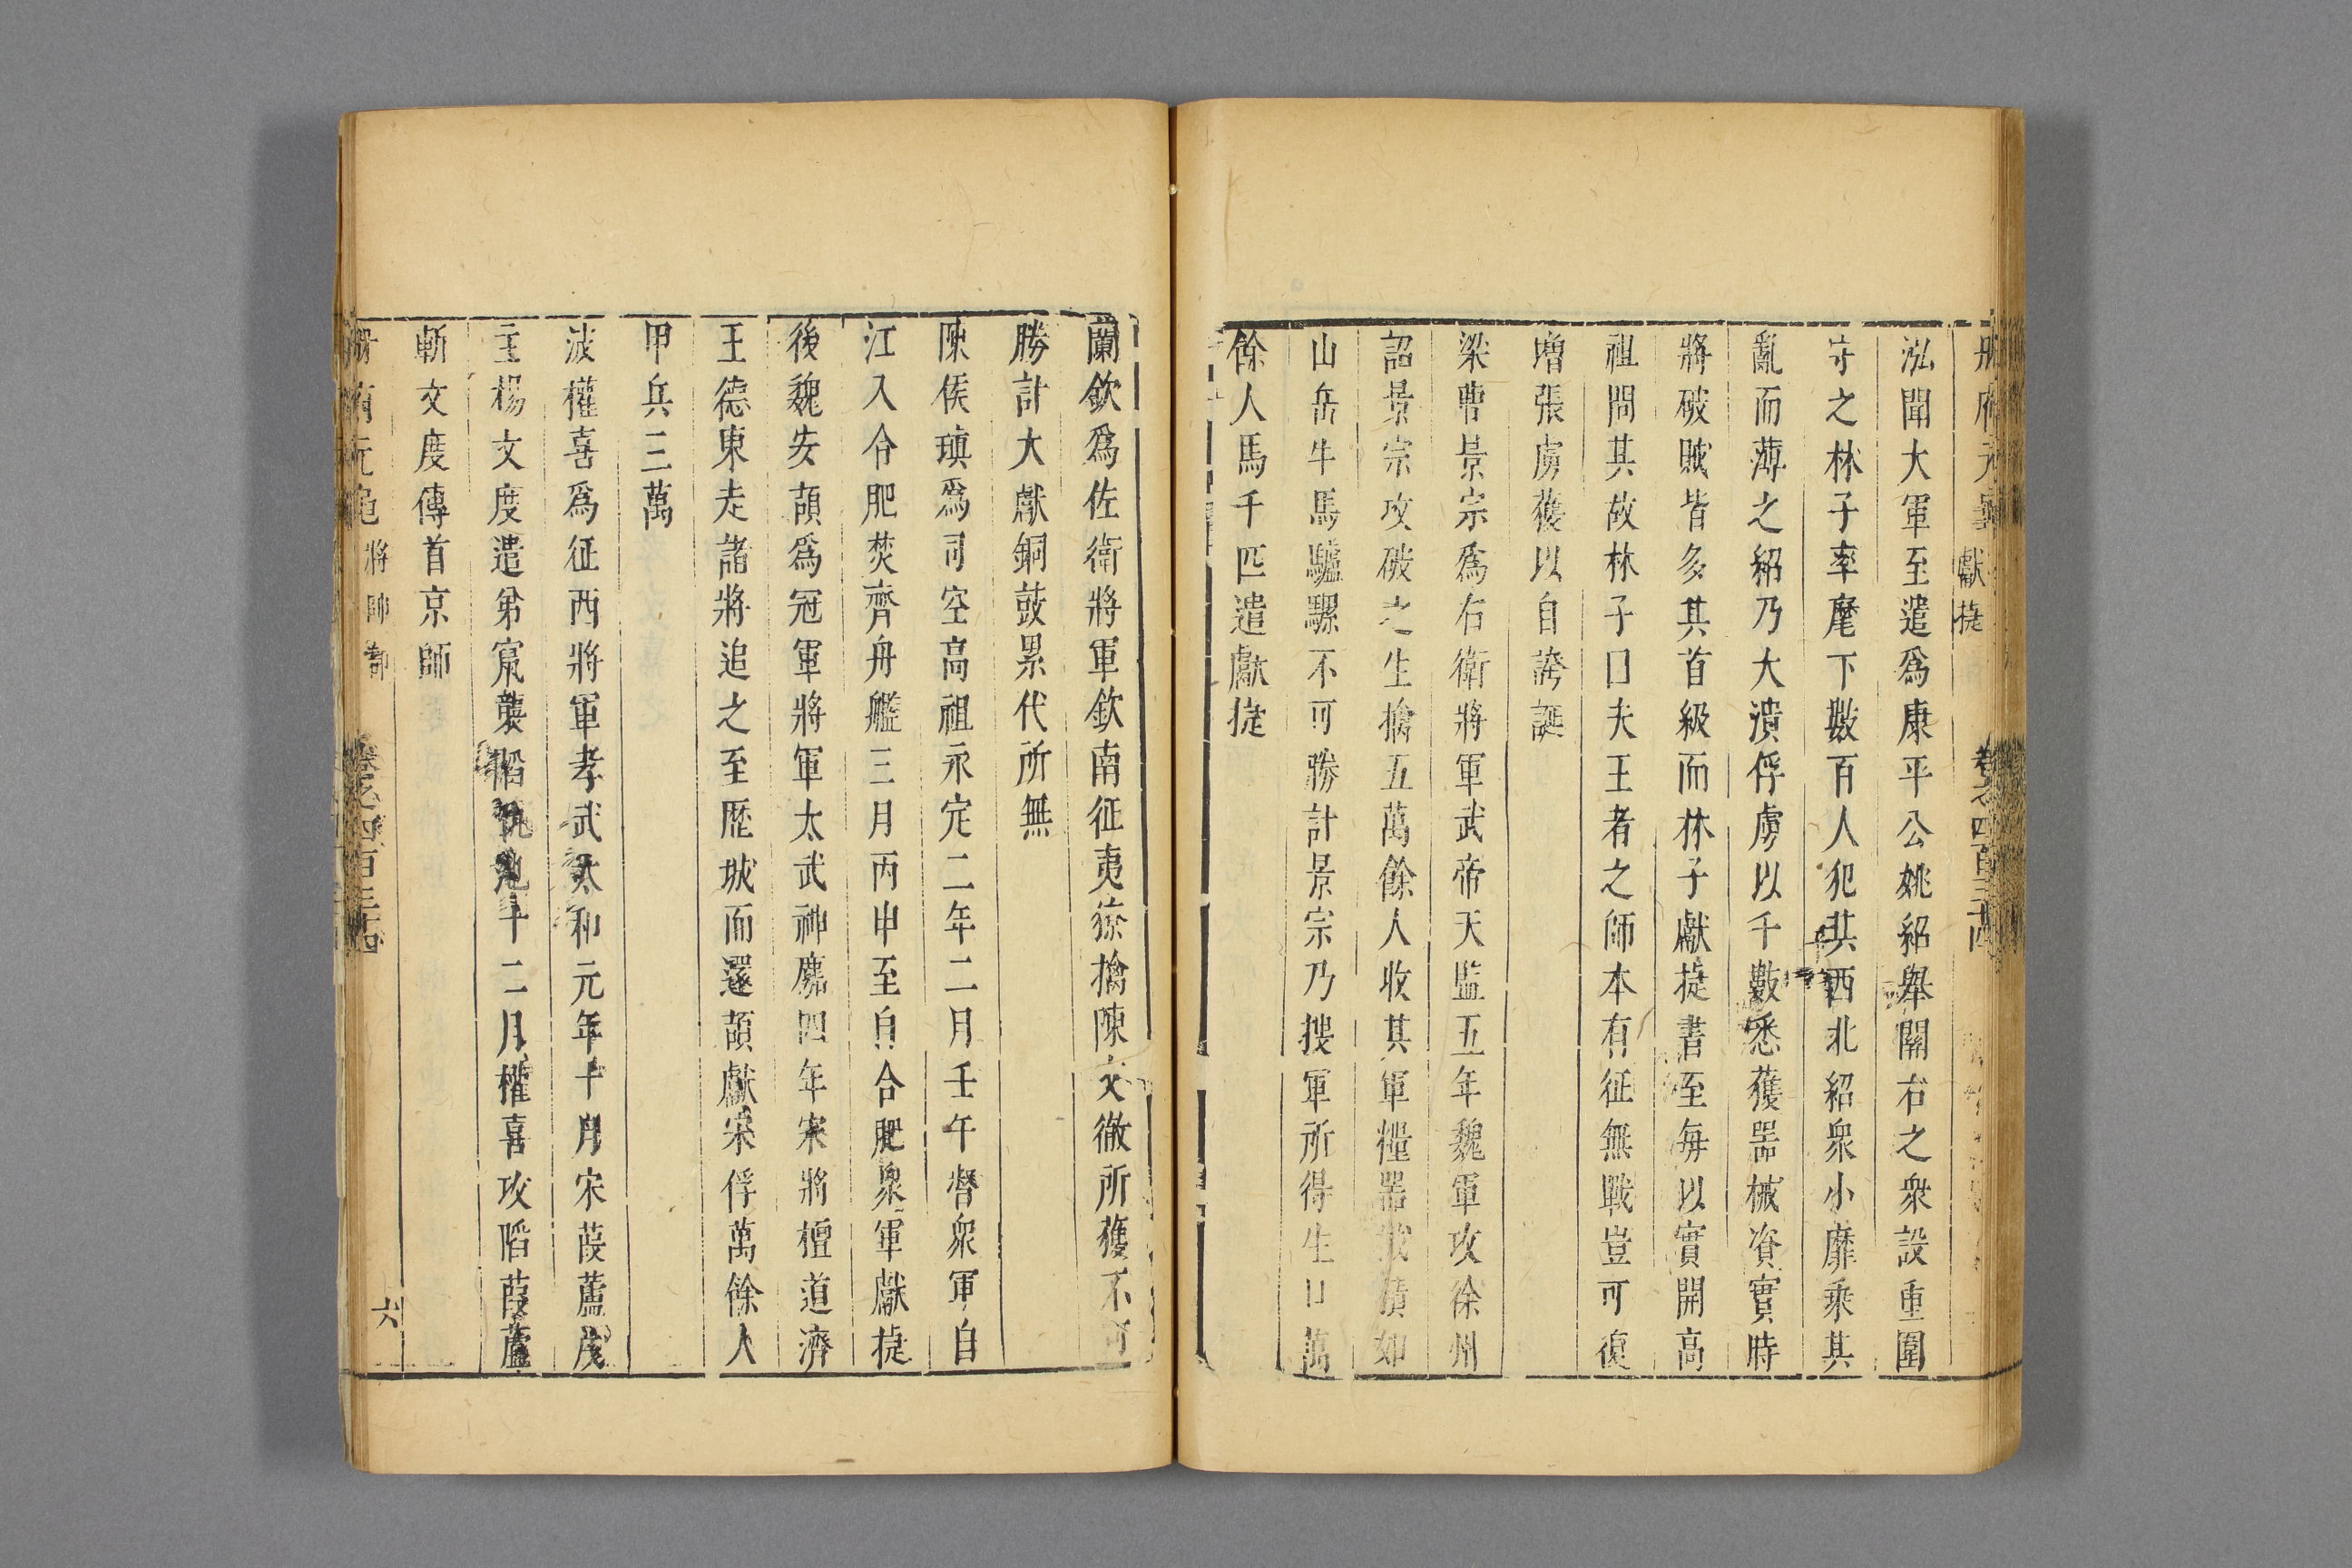 冊府元龜 獻捷 卷之四百三十四
泓聞大軍至遣爲康平公姚紹舉關右之衆設重圍
守之林子率麾下數百人犯其西北紹衆小靡乘其
亂而薄之紹乃大潰俘虜以千數悉獲器械資實時
將破賊皆多其首級而林子獻捷書至每以實聞高
祖問其故林子曰夫王者之師本有征無戰豈可復
增張虜獲以自誇誕
梁曹景宗爲右衛將軍武帝天監五年魏軍攻徐州
詔景宗攻破之生擒五萬餘人收其軍糧器械積如
山岳牛馬驢騾不可勝計景宗乃搜軍所得生口萬
餘人馬千匹遣獻捷
蘭欽爲佐衛將軍欽南征夷獠擒陳文徹所獲不可
勝計大獻銅鼓累代所無
陳侯瑱爲司空高祖永定二年二月壬午督衆軍自
江入合肥焚齊舟艦三月丙申至自合肥衆軍獻捷
後魏安頡爲冠軍將軍太武神䴥四年宋將檀道濟
王德東走諸將追之至歷城而還頡獻宋俘萬餘人
甲兵三萬
波權喜爲征西將軍孝武太和元年十月宋葭蘆戍
主楊文度遣弟鼠襲陷仇池十二月權喜攻陷葭蘆
斬文度傳首京師
冊府元龜 將帥部 卷之四百三十四 六